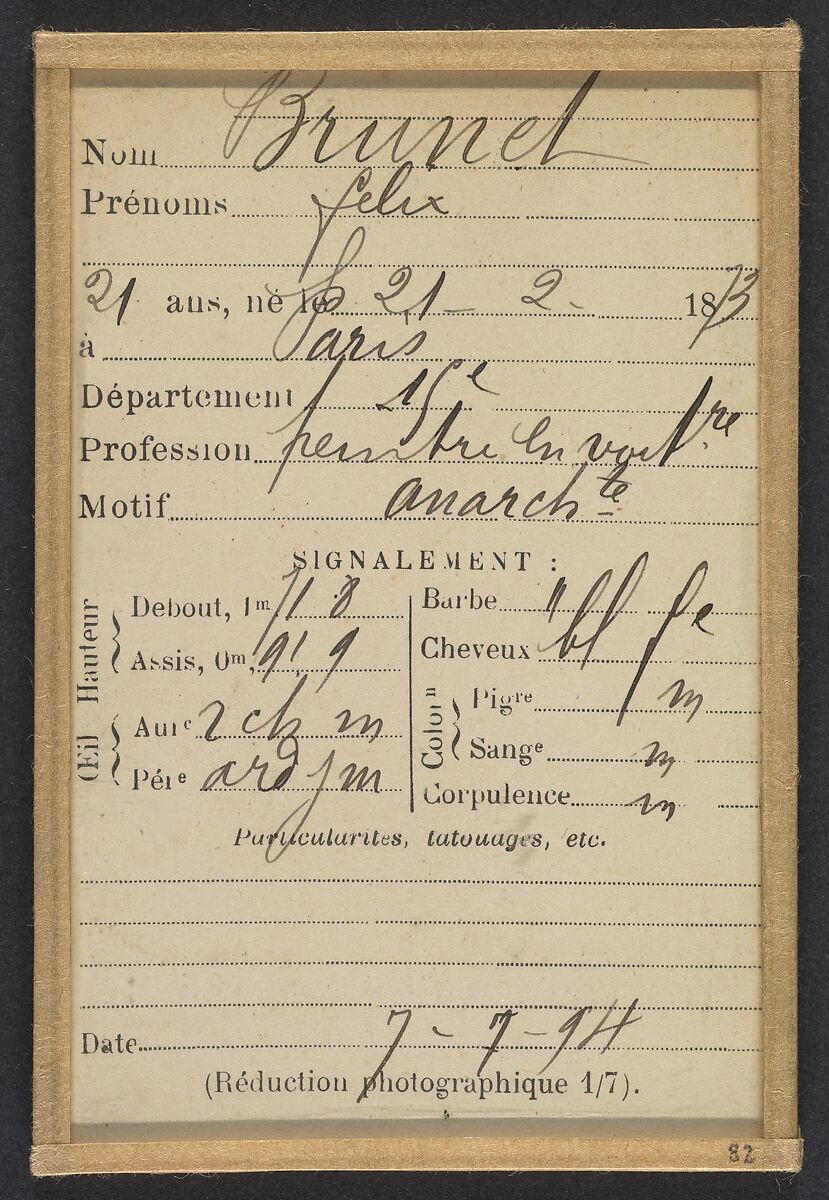 Nom Brunet
Prénoms felix
21 ans, né le 21 - 2 - 1873
à Paris
Département 15e
Profession peintre en voitre
Motif anarchte
SIGNALEMENT :
Hauteur
Debout, 1m 71 8
Assis, 0m, 91 9
Œil
Aure 2 ch m
Pére ard j m
Barbe " bl fe
Cheveux
Colorn
Pigre m
Sange m
Corpulence m
Particularités, tatouages, etc.
Date 7 - 7 - 94
(Réduction photographique 1/7).
82